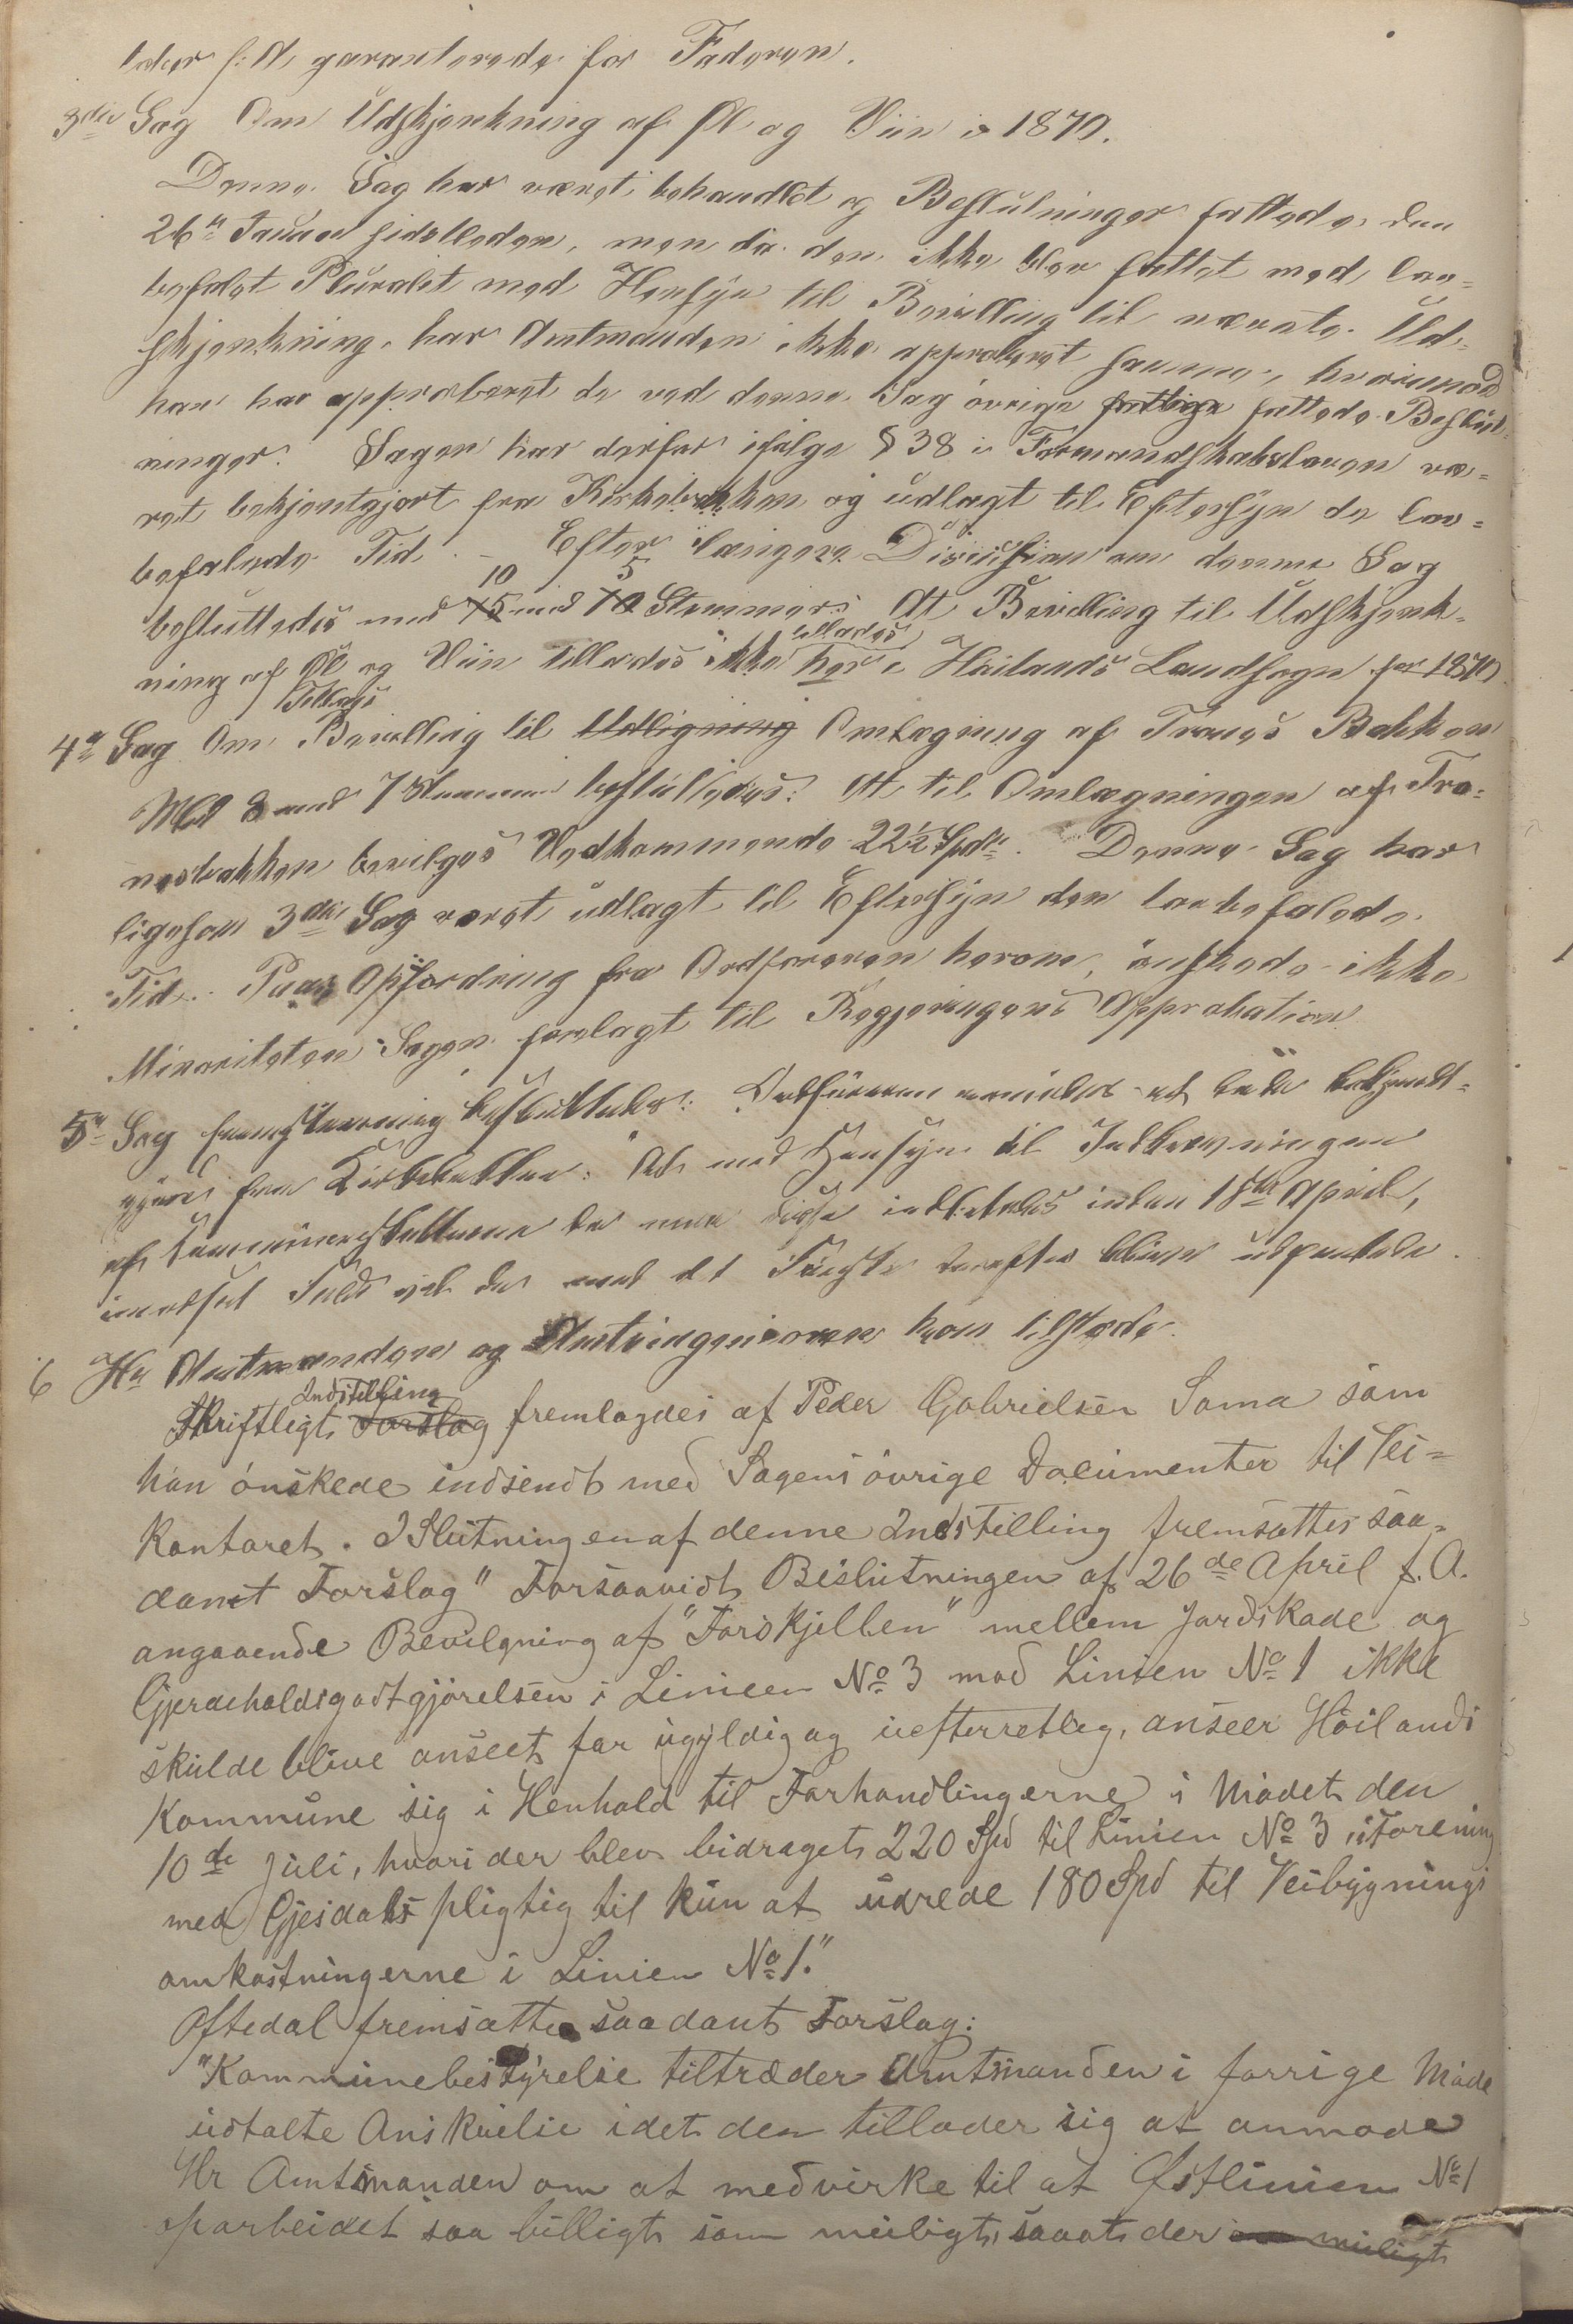 garanterede for Faderen.
3die Sag Om Udskjenkning af Øl og Viin i 1870.
Denne Sag har været behandlet og Beslutninger fattede den
26de Januar sidstleden, men da den ikke blev fattet med lov-
befalet Pluralit med Hensyn til Bevilling til nævnte Ud-
skjenkning, har Amtmanden ikke approberet samme, hvorimod
han har approberet de ved denne Sag øvrige fattede Beslut-
ninger. Sagen har derfor ifølge § 38 i Formandskabsloven væ-
ret bekjentgjort fra Kirkebakken og udlagt til Eftersyn de lov-
befalede Tid. – Efter længere Discusion om denne Sag
besluttedes med 10 mod 5 Stemmer: At Bevilling til Udskjenk-
ning af Øl og Viin tillades ikke her i Høilands Landsogn for 1870.
4de Sag Om Tillægs Bevilling til Udligning Omlægning af Tranes Bakken
Med 8 mod 7 Stemmer besluttedes: At til Omlægningen af Tra-
nesbakken bevilges Vedkommende 22½ Spdl. Denne Sag har
ligesom 3die Sag været udlagt til Eftersyn den lovbefalede
Tid. Paa Opfordring fra Ordføreren herom, ønskede ikke
Minoriteten Sagen forelagt til Regjeringens Approbation.
5te Sag besluttedes: Ordføreren at lade bekjendt-
gjøres fra Kirkebakken: "At med Hensyn til Indkrævningen
af da maa disse indbetales inden 18de April,
imodsat Fald vil de med det Første derefter blive udpantede.
6 Hr Amtmanden og Amtsingeniøren kom tilstede.
Skriftligt Forslag Indstilling fremlagdes af Peder Gabrielsen Soma som
han ønskede indsendt med Sagens øvrige Documenter til Vei-
kontoret. I Slutningen af denne Indstilling fremsattes saa-
dant Forslag "Forsaavidt Beslutningen af 26de April f. A.
angaaende Bevilgning af "Forskjellen" mellem Jordskade og
Gjerdeholdsgodtgjørelsen i Linieen No 3 mod Linien No 1 ikke
skulde blive anseet for ugyldig og uefterretlig, anseer Høilands
Kommune sig i Henhold til Forhandlingerne i Mødet den
10de Juli, hvori der blev bidraget 220 Spd til Linien No 3 i Forening
med Gjesdals pligtig til kun at udrede 180 Spd til Veibygnings
omkostningerne i Linien No 1."
Oftedal fremsatte saadant Forslag:
"Kommunebestyrelse tiltræder Amtmanden i forrige Møde
udtalte Anskuelse idet den tillader sig at anmode
Hr Amtmanden om at medvirke til at Østlinien No 1
oparbeidet saa billigt som muligt, saaat der muligt